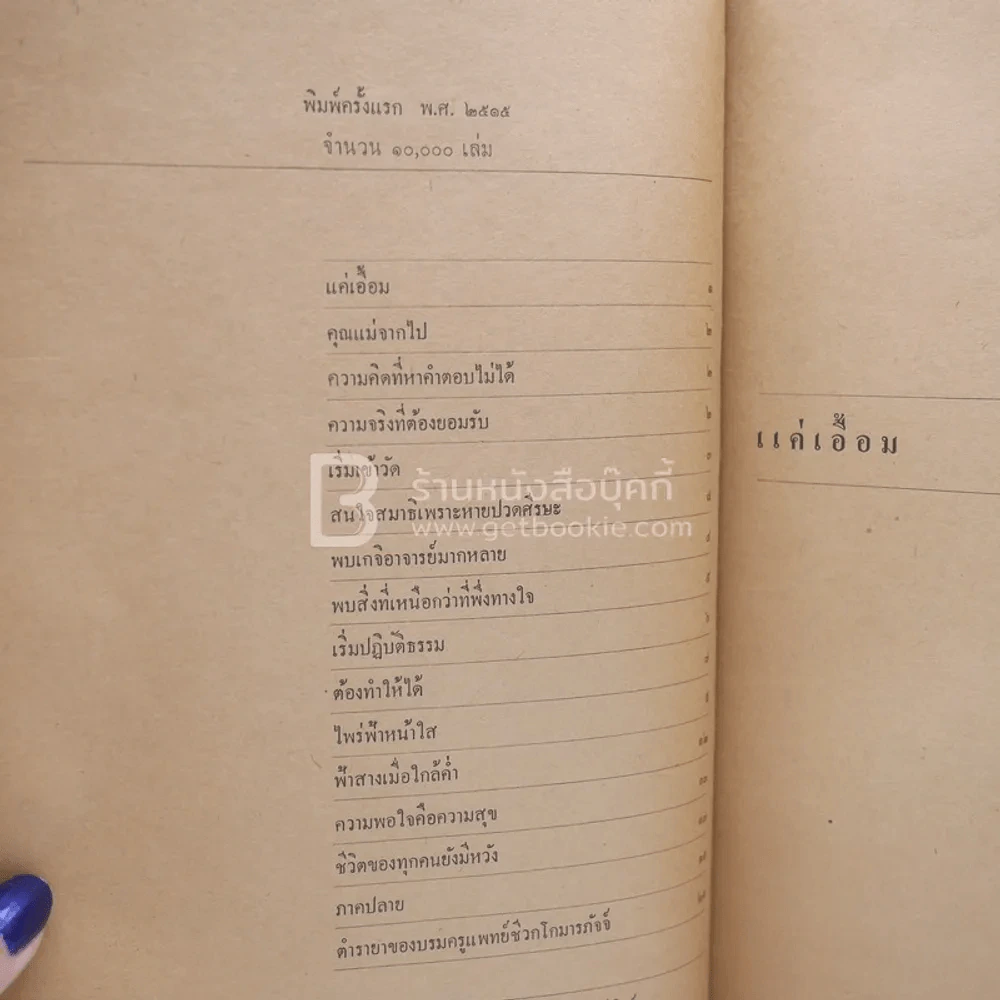 พิมพ์ครั้งแรก พ.ศ. ๒๕๑๕
จำนวน ๑๐,๐๐๐ เล่ม
แค่เอื้อม ๑
คุณแม่จากไป ๒
ความคิดที่หาคำตอบไม่ได้ ๒
ความจริงที่ต้องยอมรับ ๒
เริ่มเข้าวัด
สนใจสมาธิเพราะหายปวดศีรษะ
พบเกจิอาจารย์มากหลาย
พบสิ่งที่เหนือกว่าที่พึ่งทางใจ
เริ่มปฏิบัติธรรม
ต้องทำให้ได้
ไพร่ฟ้าหน้าใส
ฟ้าสางเมื่อใกล้ค่ำ
ความพอใจคือความสุข
ชีวิตของทุกคนยังมีหวัง
ภาคปลาย
ตำรายาของบรมครูแพทย์ชีวกโกมารภัจจ์
แค่เอื้อม
ร้านหนังสือบุ๊คกี้
www.getbookie.com